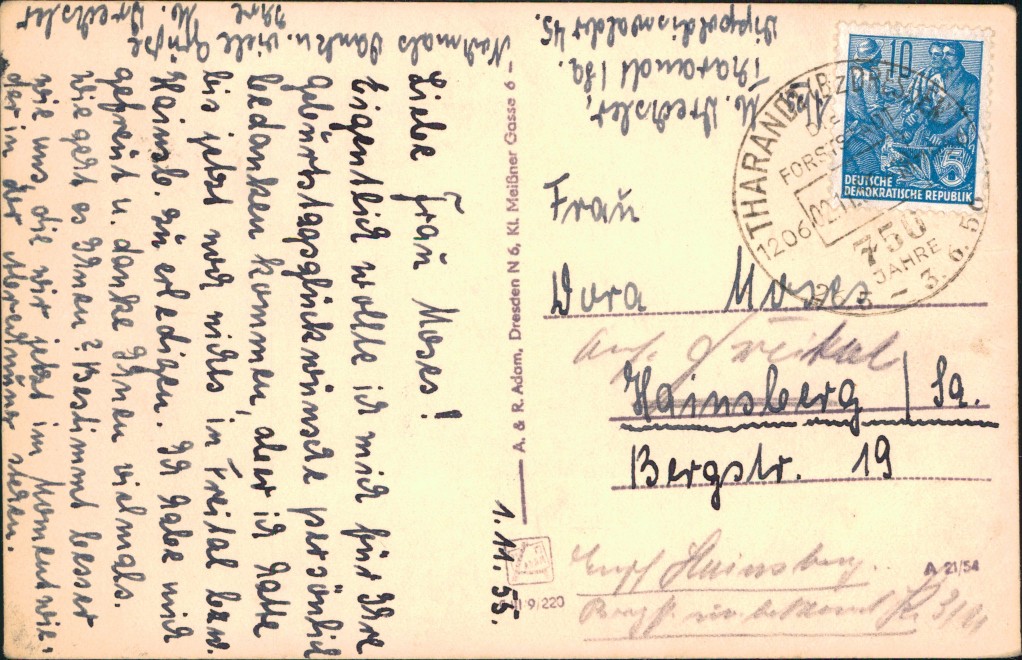 1. 11. 55.
Liebe Frau Moses!
Eigentlich wollte ich mich für Ihre
Geburtstagsglückwünsche persönlich
bedanken kommen, aber ich hatte
bis jetzt noch nichts in Freital bzw.
Hainsb. zu erledigen. Ich habe mich
gefreut u. danke Ihnen vielmals.
Wie geht es Ihnen? Bestimmt besser
wie uns, die wir jetzt im Moment wie-
der in der Abrechnung stehen.
Nochmals Dank u. viele Grüße
Ihre M. Drechsler
M. Drechsler,
Tharandt / Sa.
Dippoldiswalder 45.
A. & R. Adam, Dresden N 6, Kl. Meißner Gasse 6 -
10
DEUTSCHE
DEMOKRATISCHE REPUBLIK
5
THARANDT (BZ DRESDEN)
DIE
FORSTSTADT
02.11.
750
JAHRE
1206
3. 6. 56
Frau
Dora Moses
Freital
Hainsberg / Sa.
Bergstr. 19
Empf Hainsberg.
unbekannt
III 9/220
A 21/54